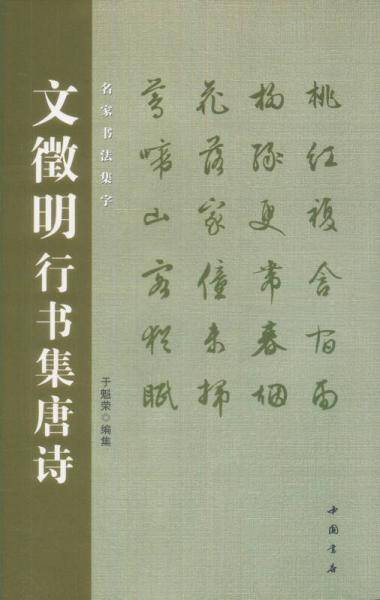 文徵明行书集唐诗
名家书法集字
于魁荣◎编集
桃红復含宿雨
柳绿更帶春烟
花落家僮未掃
鶯啼山客猶眠
中国书店